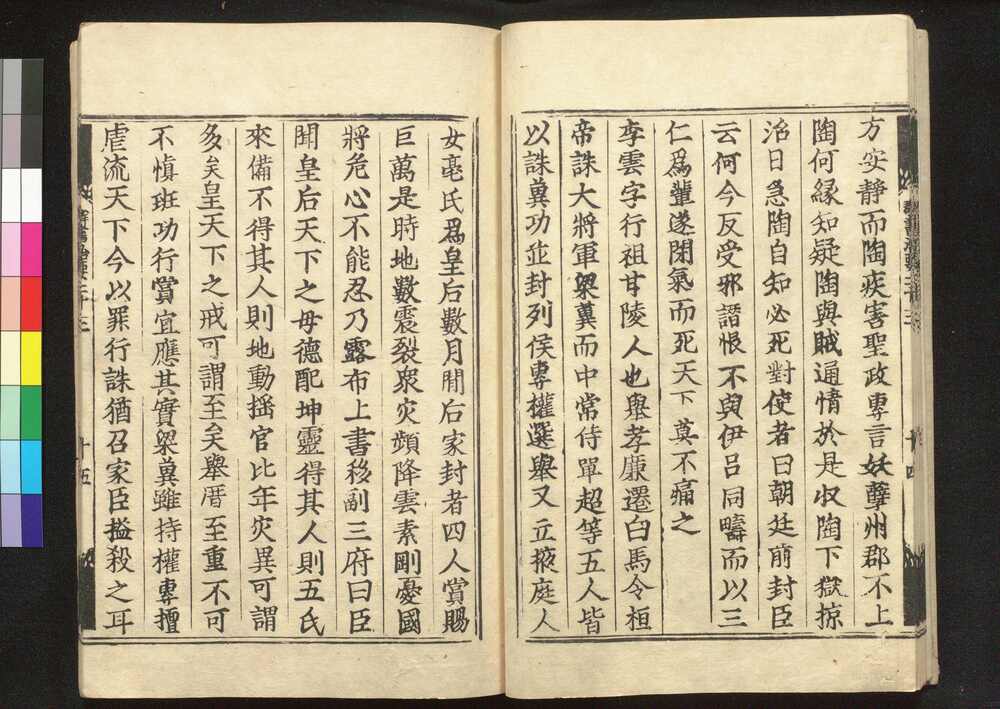 方安静而陶疾害聖政專言妖孽州郡不上
陶何緣知疑陶與賊通情於是収陶下獄掠
治日急陶自知必死對使者曰朝廷前封臣
云何今反受邪譖恨不與伊呂同疇而以三
仁爲輩遂閉氣而死天下莫不痛之
李雲字行祖甘陵人也舉孝廉遷白馬令桓
帝誅大將軍梁冀而中常侍單超等五人皆
以誅冀功並封列侯專權選舉又立掖庭人
女亳氏爲皇后數月間后家封者四人賞賜
巨萬是時地數震裂衆灾頻降雲素剛憂國
將危心不能忍乃露布上書移副三府曰臣
聞皇后天下之母德配坤靈得其人則五氏
來備不得其人則地動揺官比年灾異可謂
多矣皇天下之戒可謂至矣舉厝至重不可
不慎班功行賞宜應其實梁冀雖持權專擅
虐流天下今以罪行誅猶召家臣搤殺之耳
十五